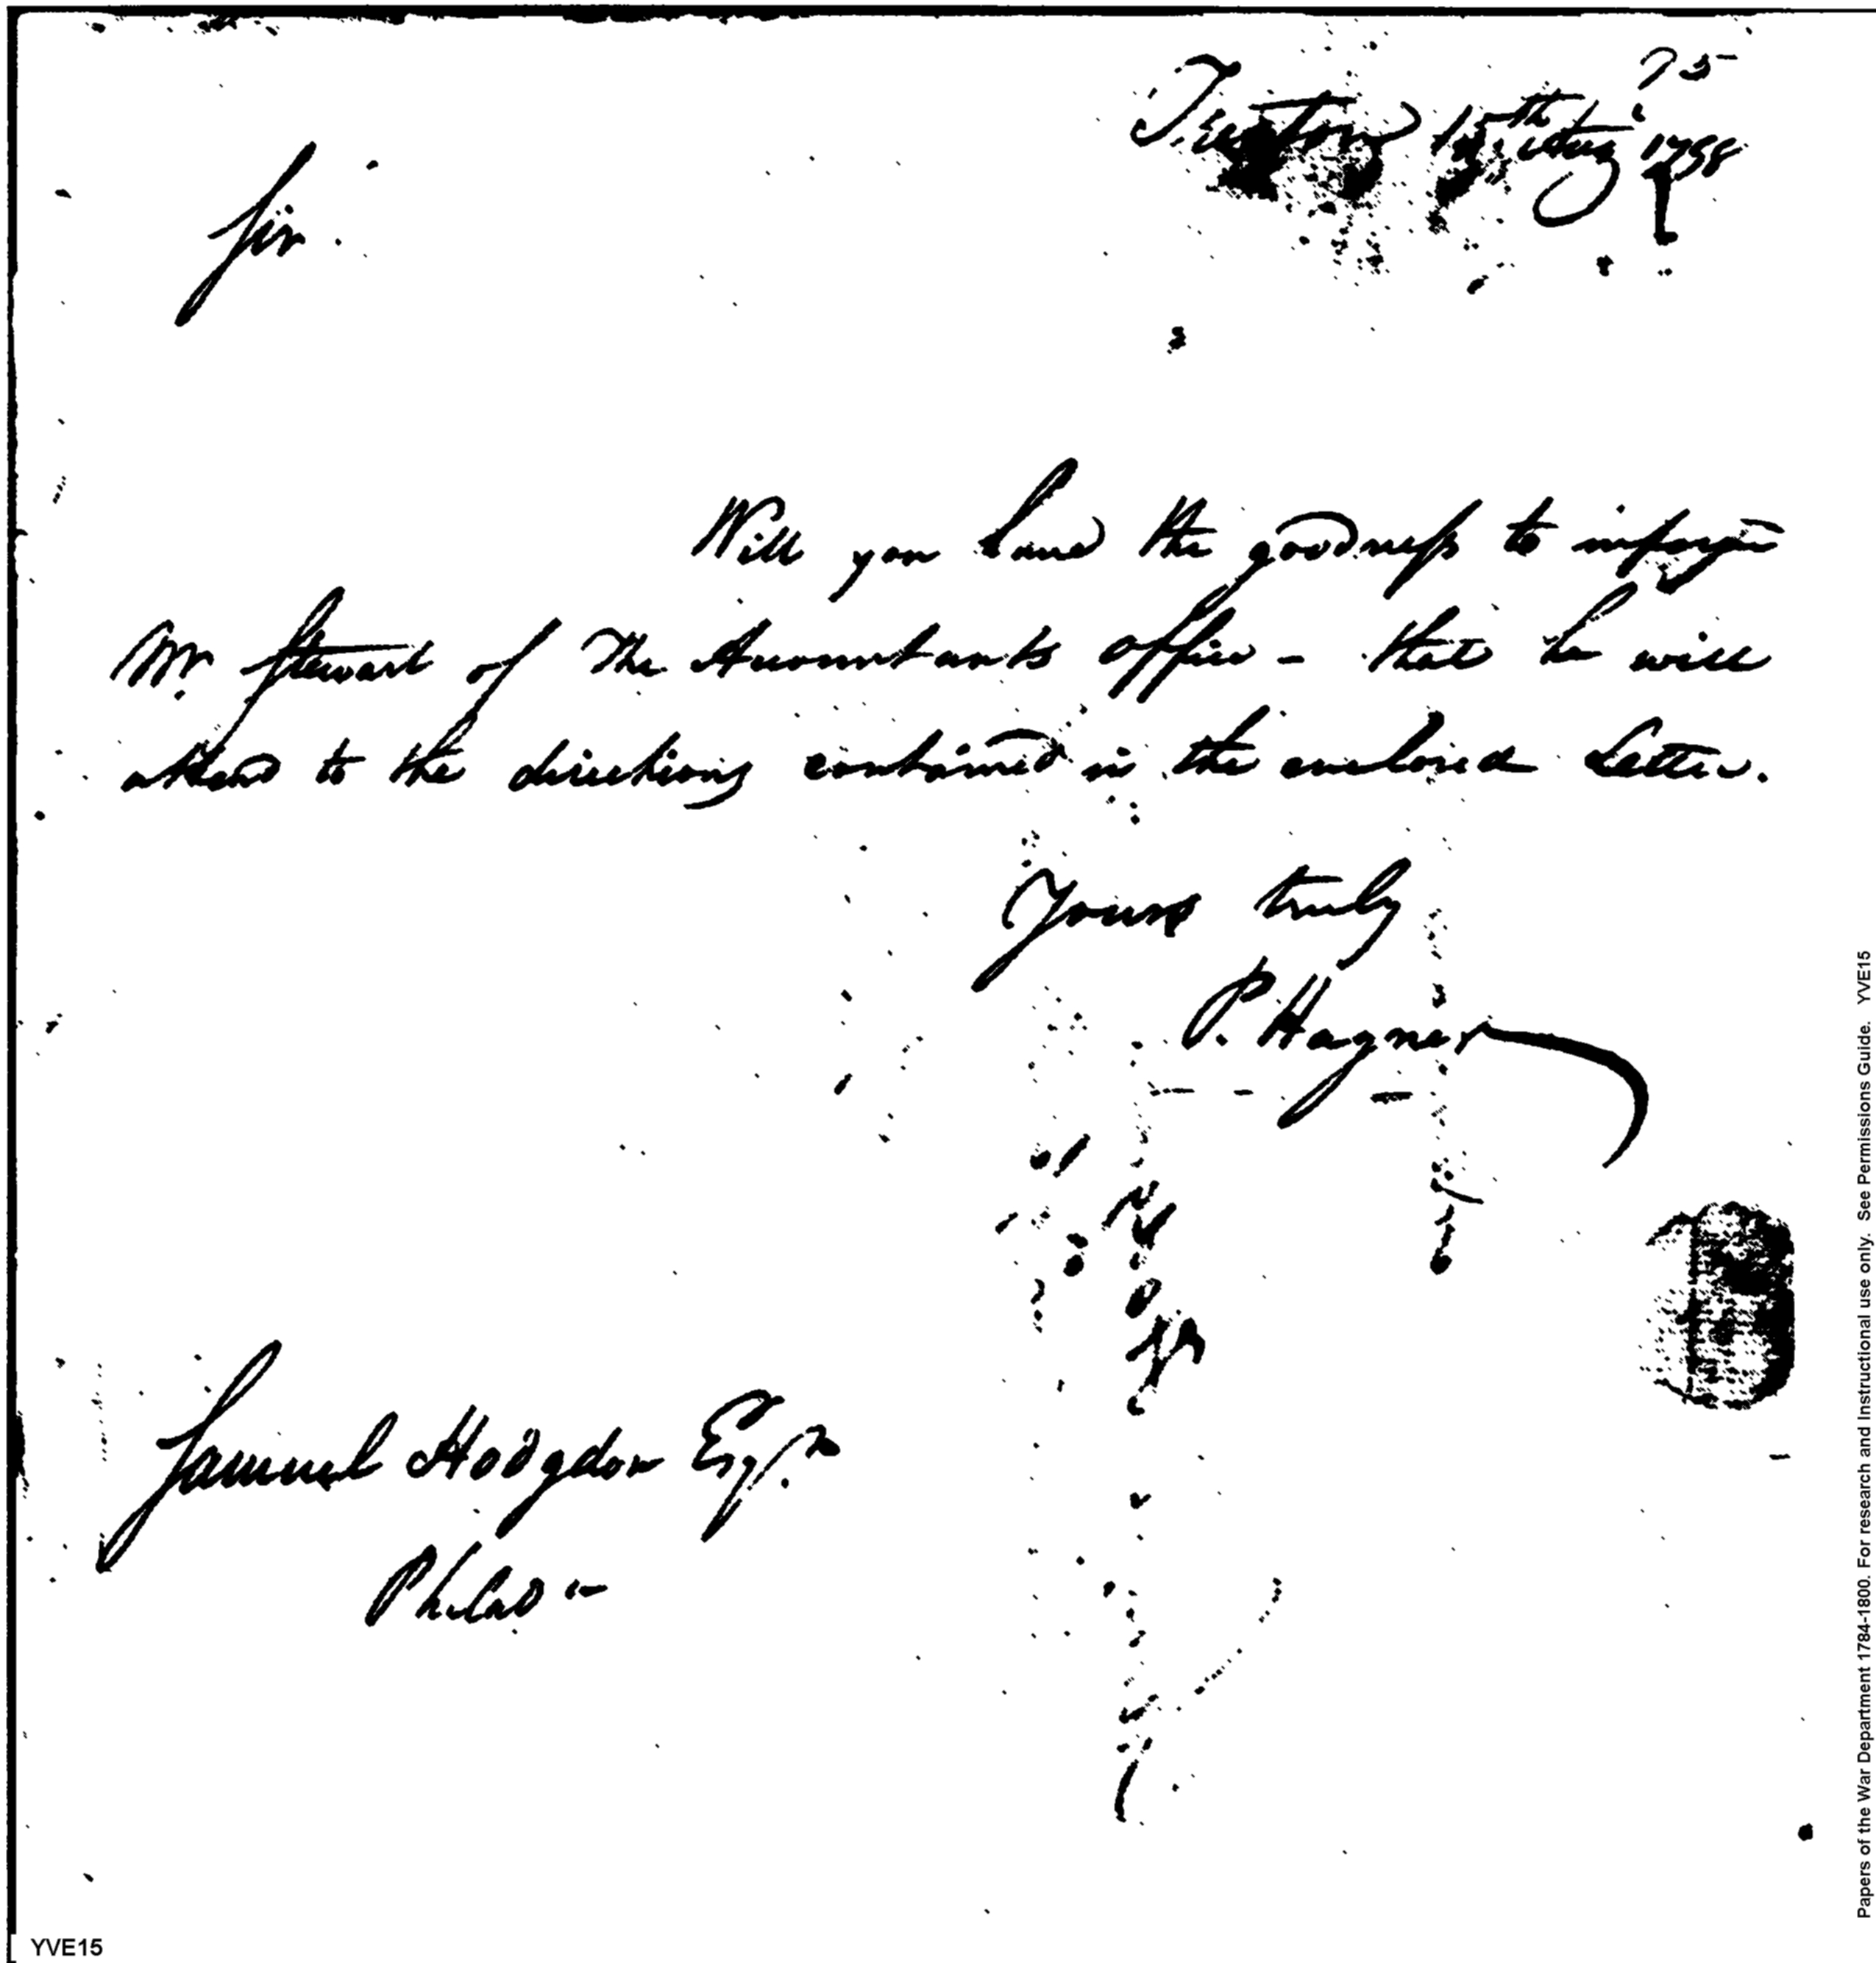 75
Trenton 15th Aug 1798
Sir
Will you have the goodness to inform
Mr Stewart of the Accountants office - that he will
attend to the directions contained in the enclosed Letter.
Yours truly
P. Hagner
Samuel Hodgdon Esqr
Philad a
Papers of the War Department 1784-1800. For research and Instructional use only. See Permissions Guide. YVE15
YVE15